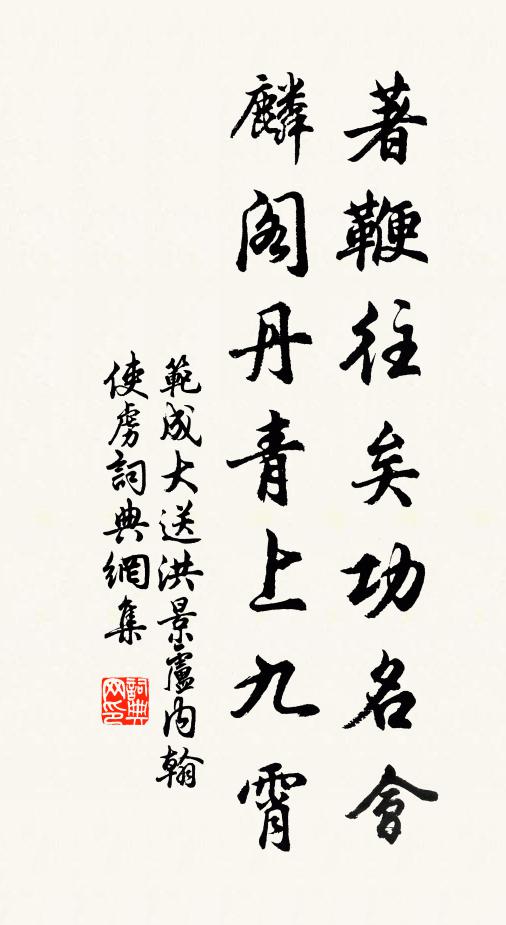 著鞭往矣功名會
麟阁丹青上九霄
範成大送洪景盧内翰
使虜詞典網集
詞典網印